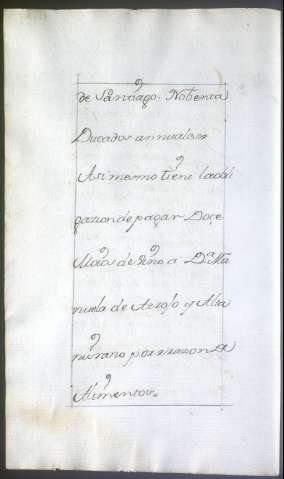 de Santiago. Nobenta
Ducados annuales
Asi mesmo tiene la obli
gazion de pagar Doçe
Moios de Vino a D.ª Ma
nuela de Araujo y Alta
mirano por rrazon de
Alimentos.